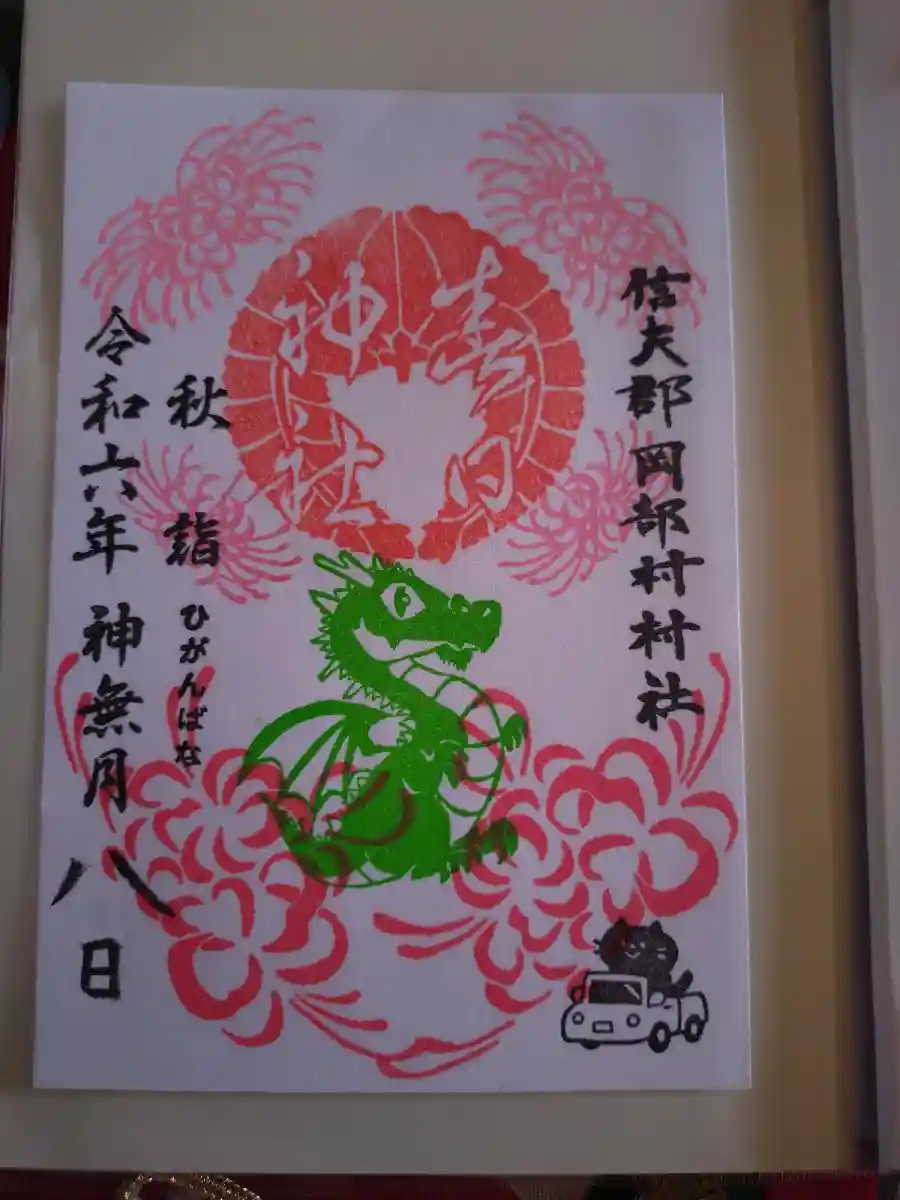 信夫郡岡部村村社
春日
神社
秋詣
ひがんばな
令和六年神無月八日